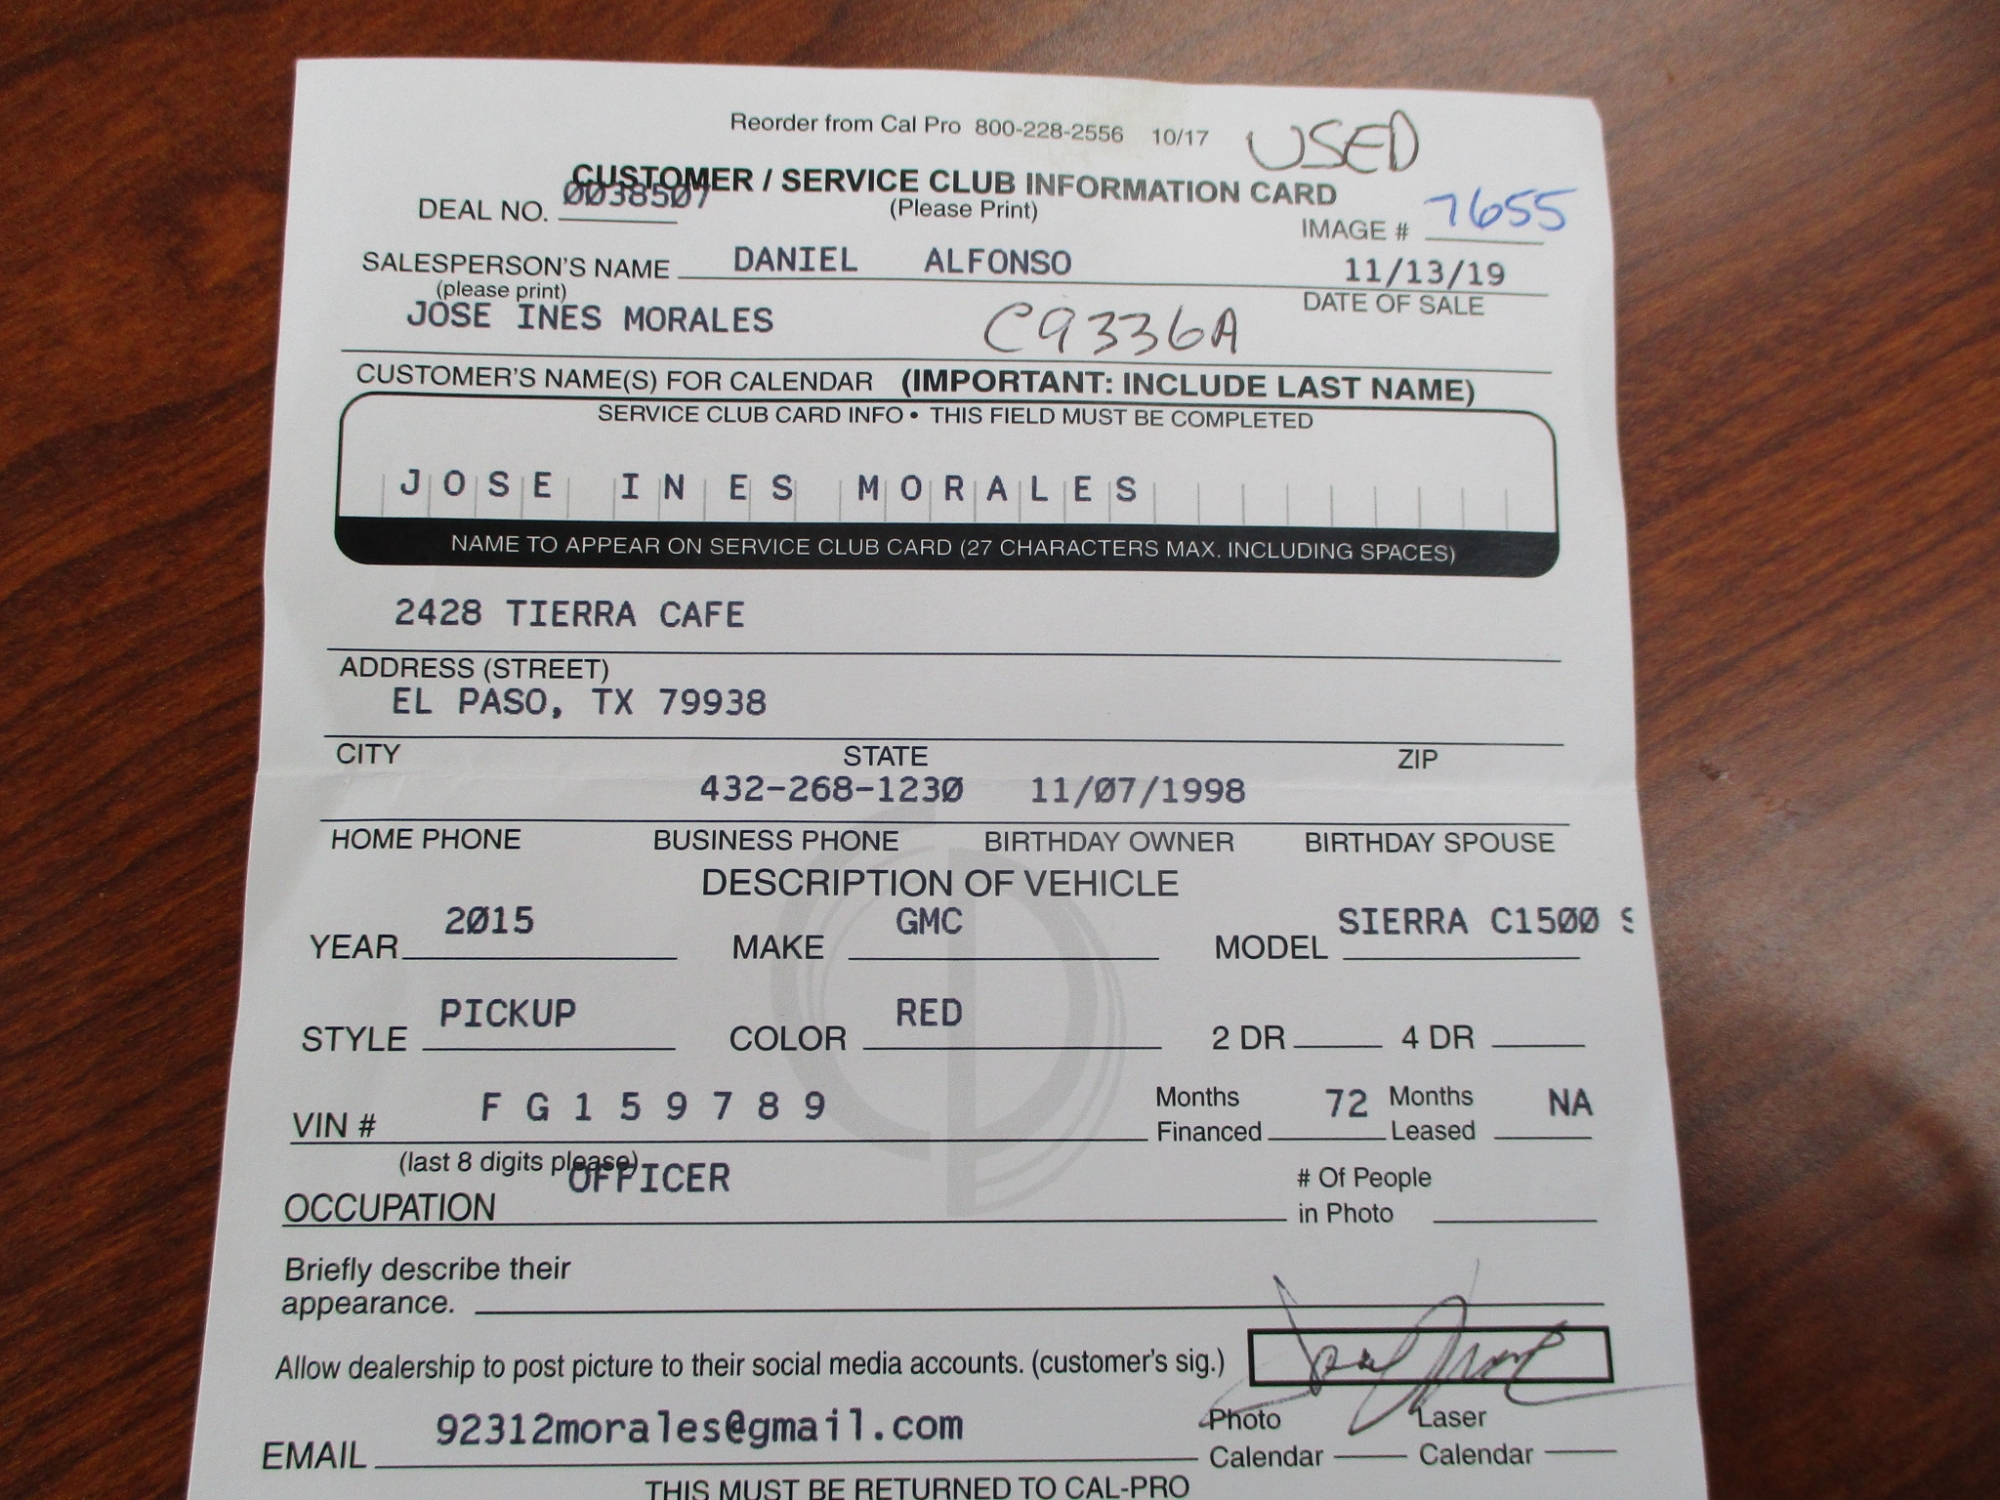 Reorder from Cal Pro 800-228-2556 10/17 USED
CUSTOMER / SERVICE CLUB INFORMATION CARD
DEAL NO. 0038507 (Please Print) IMAGE # 7655
SALESPERSON'S NAME DANIEL ALFONSO 11/13/19
(please print) DATE OF SALE
JOSE INES MORALES C9336A
CUSTOMER'S NAME(S) FOR CALENDAR (IMPORTANT: INCLUDE LAST NAME)
SERVICE CLUB CARD INFO • THIS FIELD MUST BE COMPLETED
JOSE INES MORALES
NAME TO APPEAR ON SERVICE CLUB CARD (27 CHARACTERS MAX. INCLUDING SPACES)
2428 TIERRA CAFE
ADDRESS (STREET)
EL PASO, TX 79938
CITY STATE ZIP
432-268-1230 11/07/1998
HOME PHONE BUSINESS PHONE BIRTHDAY OWNER BIRTHDAY SPOUSE
DESCRIPTION OF VEHICLE
YEAR 2015 MAKE GMC MODEL SIERRA C1500 S
STYLE PICKUP COLOR RED 2 DR 4 DR
VIN # F G 1 5 9 7 8 9 Months Financed 72 Months Leased NA
(last 8 digits please)
OCCUPATION OFFICER # Of People in Photo
Briefly describe their
appearance.
Allow dealership to post picture to their social media accounts. (customer's sig.)
EMAIL 92312morales@gmail.com Photo Calendar Laser Calendar
THIS MUST BE RETURNED TO CAL-PRO